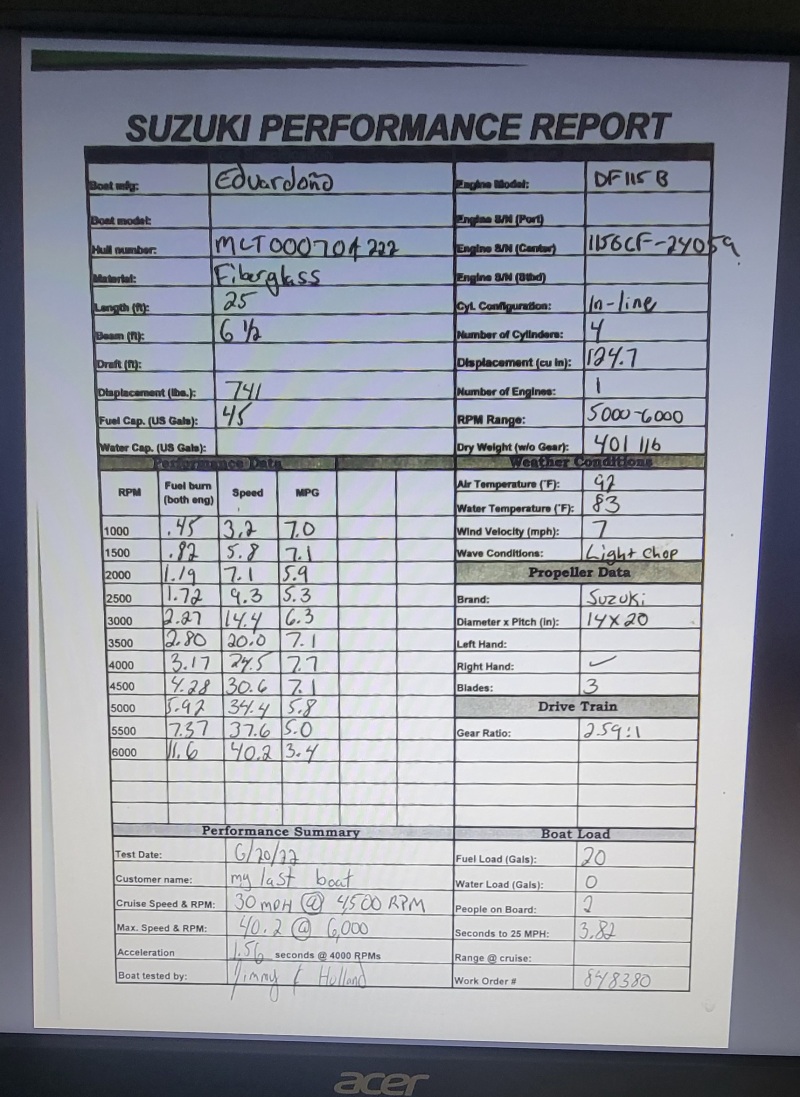 SUZUKI PERFORMANCE REPORT
Boat mfg: Eduardoño Engine Model: DF115B
Boat model: Engine S/N (Port)
Hull number: MCT00070A222 Engine S/N (Center) 115GCF-24059
Material: Fiberglass Engine S/N (Stbd)
Length (ft): 25 Cyl. Configuration: In-line
Beam (ft): 6 1/2 Number of Cylinders: 4
Draft (ft): Displacement (cu in): 124.7
Displacement (lbs.): 741 Number of Engines: 1
Fuel Cap. (US Gals): 45 RPM Range: 5000-6000
Water Cap. (US Gals): Dry Weight (w/o Gear): 401 lb
Performance Data Weather Conditions
RPM Fuel burn (both eng) Speed MPG Air Temperature (˚F): 92
Water Temperature (˚F): 83
1000 .45 3.2 7.0 Wind Velocity (mph): 7
1500 .82 5.8 7.1 Wave Conditions: Light chop
2000 1.19 7.1 5.9 Propeller Data
2500 1.72 9.3 5.3 Brand: Suzuki
3000 2.27 14.4 6.3 Diameter x Pitch (in): 14x20
3500 2.80 20.0 7.1 Left Hand:
4000 3.17 24.5 7.7 Right Hand: ✓
4500 4.28 30.6 7.1 Blades: 3
5000 5.92 34.4 5.8 Drive Train
5500 7.37 37.6 5.0 Gear Ratio: 2.59:1
6000 11.6 40.2 3.4
Performance Summary Boat Load
Test Date: 6/20/22 Fuel Load (Gals): 20
Customer name: my last boat Water Load (Gals): 0
Cruise Speed & RPM: 30 mpH @ 4,500 RPM People on Board: 2
Max. Speed & RPM: 40.2 @ 6,000 Seconds to 25 MPH: 3.82
Acceleration 1.56 seconds @ 4000 RPMs Range @ cruise:
Boat tested by: Jimmy & Holland Work Order # 848380
acer